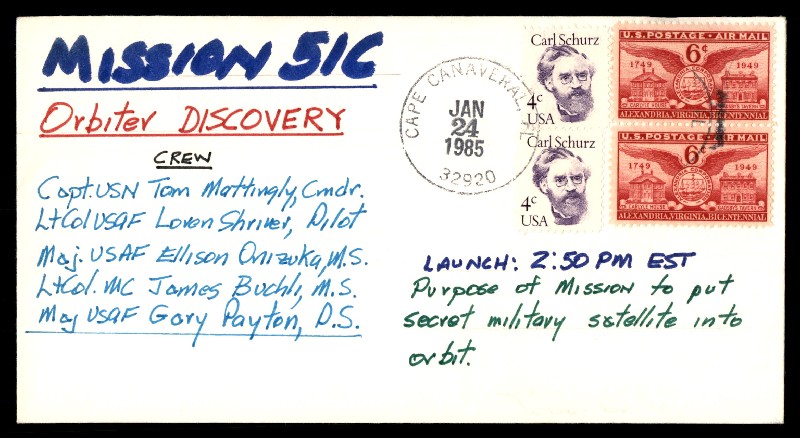 Mission 51C
Orbiter DISCOVERY
CREW
Capt. USN Tom Mattingly, Cmdr.
Lt Col USAF Loren Shriver, Pilot
Maj. USAF Ellison Onizuka, M.S.
Lt Col. MC James Buchli, M.S.
Maj USAF Gary Payton, P.S.
CAPE CANAVERAL, FL
JAN
24
1985
32920
Carl Schurz
4c
USA
Carl Schurz
4c
USA
U.S. POSTAGE - AIR MAIL
6¢
1749 1949
CARLYLE HOUSE
ALEXANDRIA, VIRGINIA, BICENTENNIAL
U.S. POSTAGE - AIR MAIL
6¢
1749 1949
CARLYLE HOUSE GADSBY'S TAVERN
ALEXANDRIA, VIRGINIA, BICENTENNIAL
LAUNCH: 2:50 PM EST
Purpose of Mission to put
secret military satellite into
orbit.